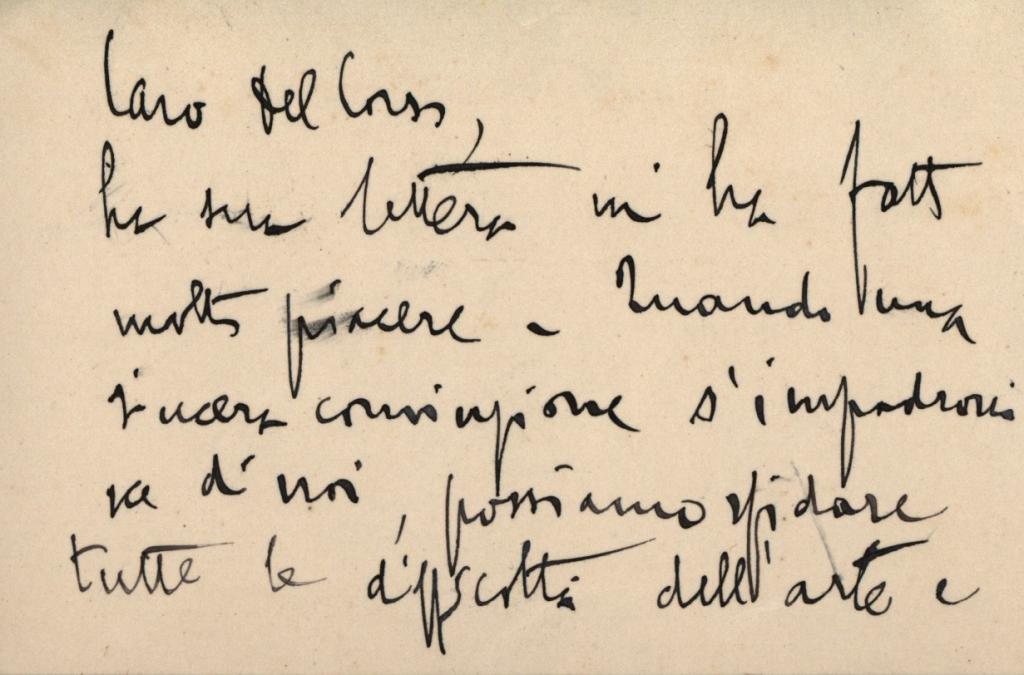 Caro Del Corso,
la sua lettera mi ha fatto
molto piacere - Quando una
sincera convinzione s'impadroni
sce di noi, possiamo sfidare
tutte le difficoltà dell'arte e